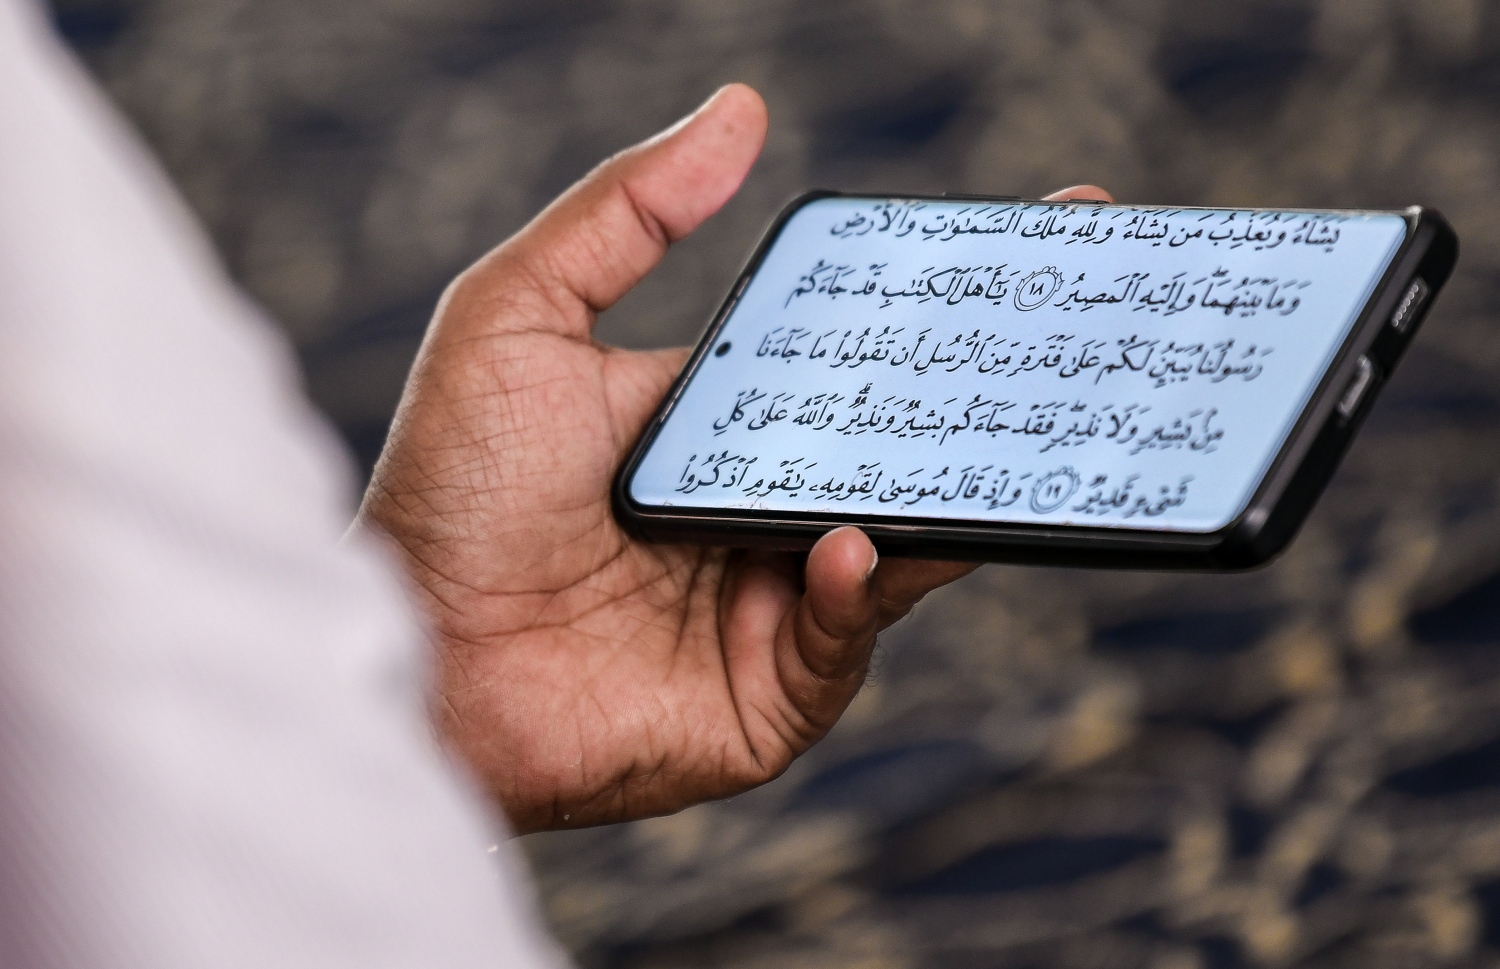 يَشَآءُ وَيُعَذِّبُ مَن يَشَآءُ وَلِلَّهِ مُلْكُ ٱلسَّمَٰوَٰتِ وَٱلْأَرْضِ
وَمَا بَيْنَهُمَا ۖ وَإِلَيْهِ ٱلْمَصِيرُ ١٨ يَٰٓأَهْلَ ٱلْكِتَٰبِ قَدْ جَآءَكُمْ
رَسُولُنَا يُبَيِّنُ لَكُمْ عَلَىٰ فَتْرَةٍ مِّنَ ٱلرُّسُلِ أَن تَقُولُوا۟ مَا جَآءَنَا
مِنۢ بَشِيرٍ وَلَا نَذِيرٍ ۖ فَقَدْ جَآءَكُم بَشِيرٌ وَنَذِيرٌ ۗ وَٱللَّهُ عَلَىٰ كُلِّ
شَىْءٍ قَدِيرٌ ١٩ وَإِذْ قَالَ مُوسَىٰ لِقَوْمِهِۦ يَٰقَوْمِ ٱذْكُرُوا۟